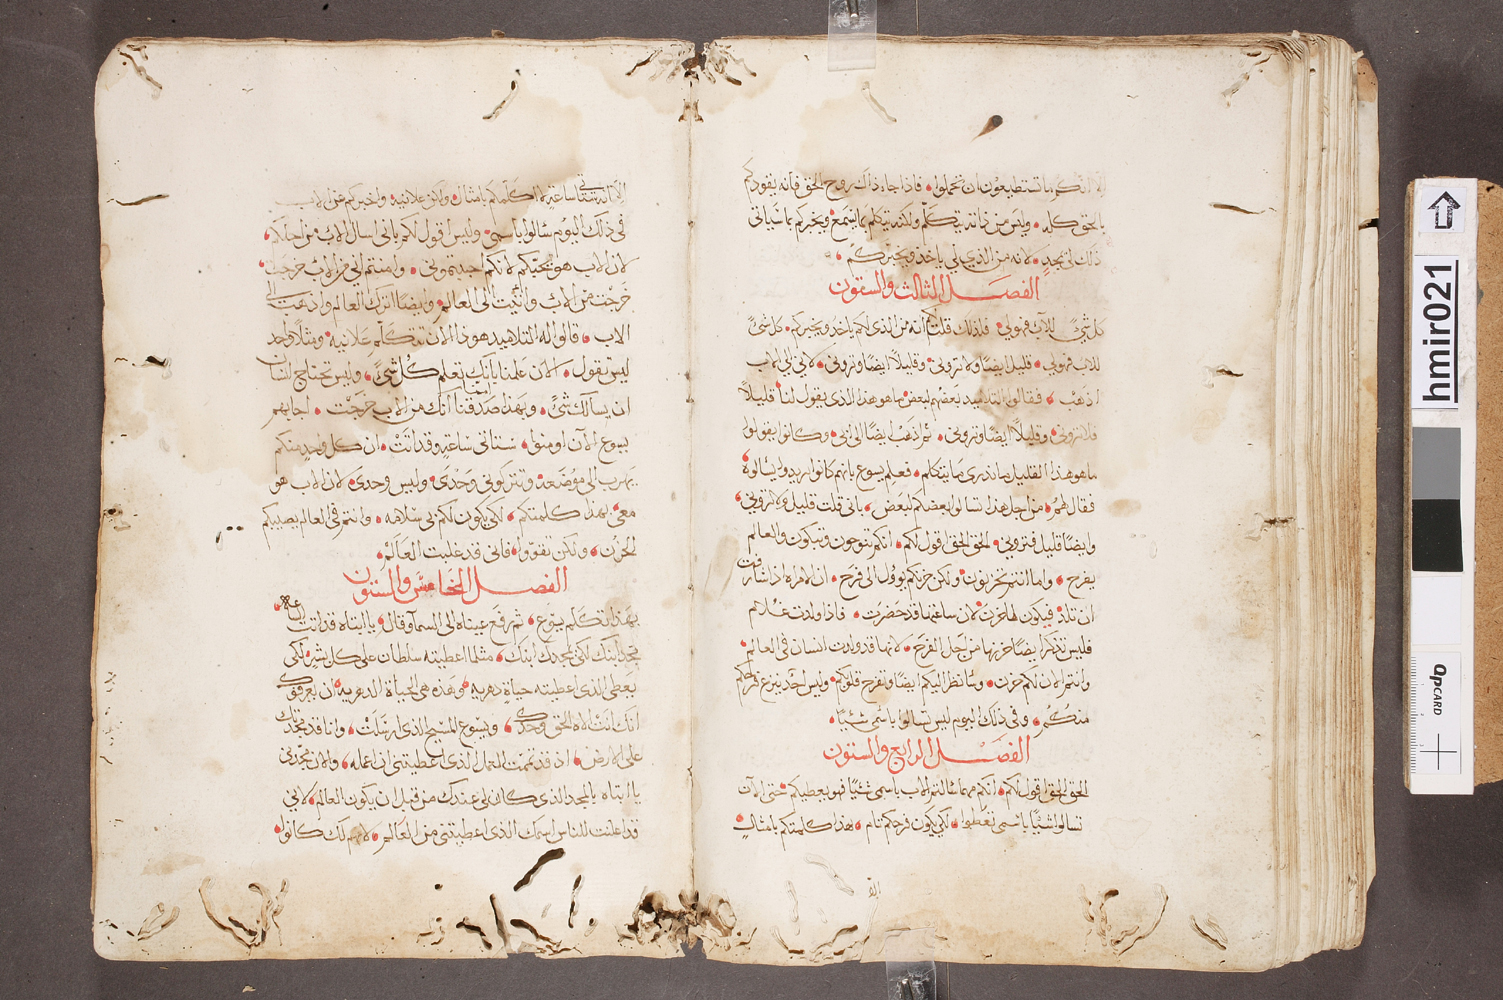 الا انكم ما تستطيعون ان تحملوا فاذا جاء ذاك روح الحق فانه يقودكم
بالحق كله وليس من ذاته يتكلم ولكنه يتكلم بما يسمع ويخبركم بما سياتي
ذلك لي يمجد لانه من الذي لي ياخذ ويخبركم
الفصل الثالث والستون
كل شي للاب فهو لي فلذلك قلت لكم انه من الذي لكم ياخذ ويخبركم كل شي
للاب فهو لي قليل ايضا ولا تروني وقليلا ايضا وتروني لاني الي الاب
اذهب فقالوا التلاميد بعضهم لبعض ما هو هذا الذي يقول لنا قليلا
فلا تروني وقليلا ايضا وتروني ثم اذهب ايضا الى ابي وكانوا يقولوا
ما هو هذا القليل ما ندري ما يتكلم فعلم يسوع بانهم كانوا يريدوا يسالوه
فقال لهم من اجل هذا تسالوا بعضكم لبعض باني قلت قليل ولا تروني
وايضا قليل فتروني الحق الحق اقول لكم انكم تنوحون وتبكون والعالم
يفرح واما انتم تحزنون ولكن حزنكم يوول الى فرح ان الامراه اذا شارفت
ان تلد فيكون لها حزن لان ساعتها قد حضرت فاذا ولدت غلام
فليس تذكر ايضا حزنها من اجل الفرح لانها قد ولدت انسان في العالم
وانتم الان لكم حزن وسانظر اليكم ايضا وتفرح قلوبكم وليس احد ينزع فرحكم
منكم وفي ذلك اليوم ليس تسالوا باسمي شيئا
الفصل الرابع والستون
الحق الحق اقول لكم انكم مهما سالتم الاب باسمي شيئا فهو يعطيكم حتى الان
تسالوا شيئا باسمي تعطوا لكي يكون فرحكم تام هذا كلمتكم بامثال
الا انه ستاتي ساعة لا اكلمكم بامثال ولكن علانيه واخبركم عن الاب
في ذلك اليوم تسالوا باسمي وليس اقول لكم باني اسال الاب من اجلكم
لان الاب هو يحبكم لانكم احببتموني وامنتم اني من الاب خرجت
خرجت من الاب واتيت الى العالم وايضا اترك العالم واذهب الى
الاب قالوا له التلاميد هوذا الان تتكلم علانيه ومثلا واحد
ليس تقول الان علمنا بانك تعلم كل شي وليس تحتاج انسان
ان يسالك شي وبهذا صدقنا انك من الاب خرجت اجابهم
يسوع الان اومنوا ستاتي ساعة وقد اتت ان كل واحد منكم
يهرب الى موضعه وتتركوني وحدي وليس وحدي لان الاب هو
معي بهذا كلمتكم لكي يكون لكم بي سلامه وانتم في العالم يصيبكم
الحزن ولكن تقووا فاني قد غلبت العالم
الفصل الخامس والستون
بهذا تكلم يسوع ثم رفع عيناه الى السما وقال يا ابتاه قد اتت الساعه
مجد ابنك لكي يمجدك ابنك مثلما اعطيته سلطان على كل بشر لكي
يعطى الذي اعطيته حياة دهريه وهذه هي الحياة الدهريه ان يعرفوك
انك انت الاه الحق وحدك ويسوع المسيح الذي ارسلت وانا قد مجدتك
على الارض اذ قد تممت العمل الذي اعطيتني ان اعمله والان مجدني
يا ابتاه بالمجد الذي كان لي عندك من قبل ان يكون العالم لاني
قد اعلنت للناس اسمك الذي اعطيتني من العالم لانهم لك كانوا